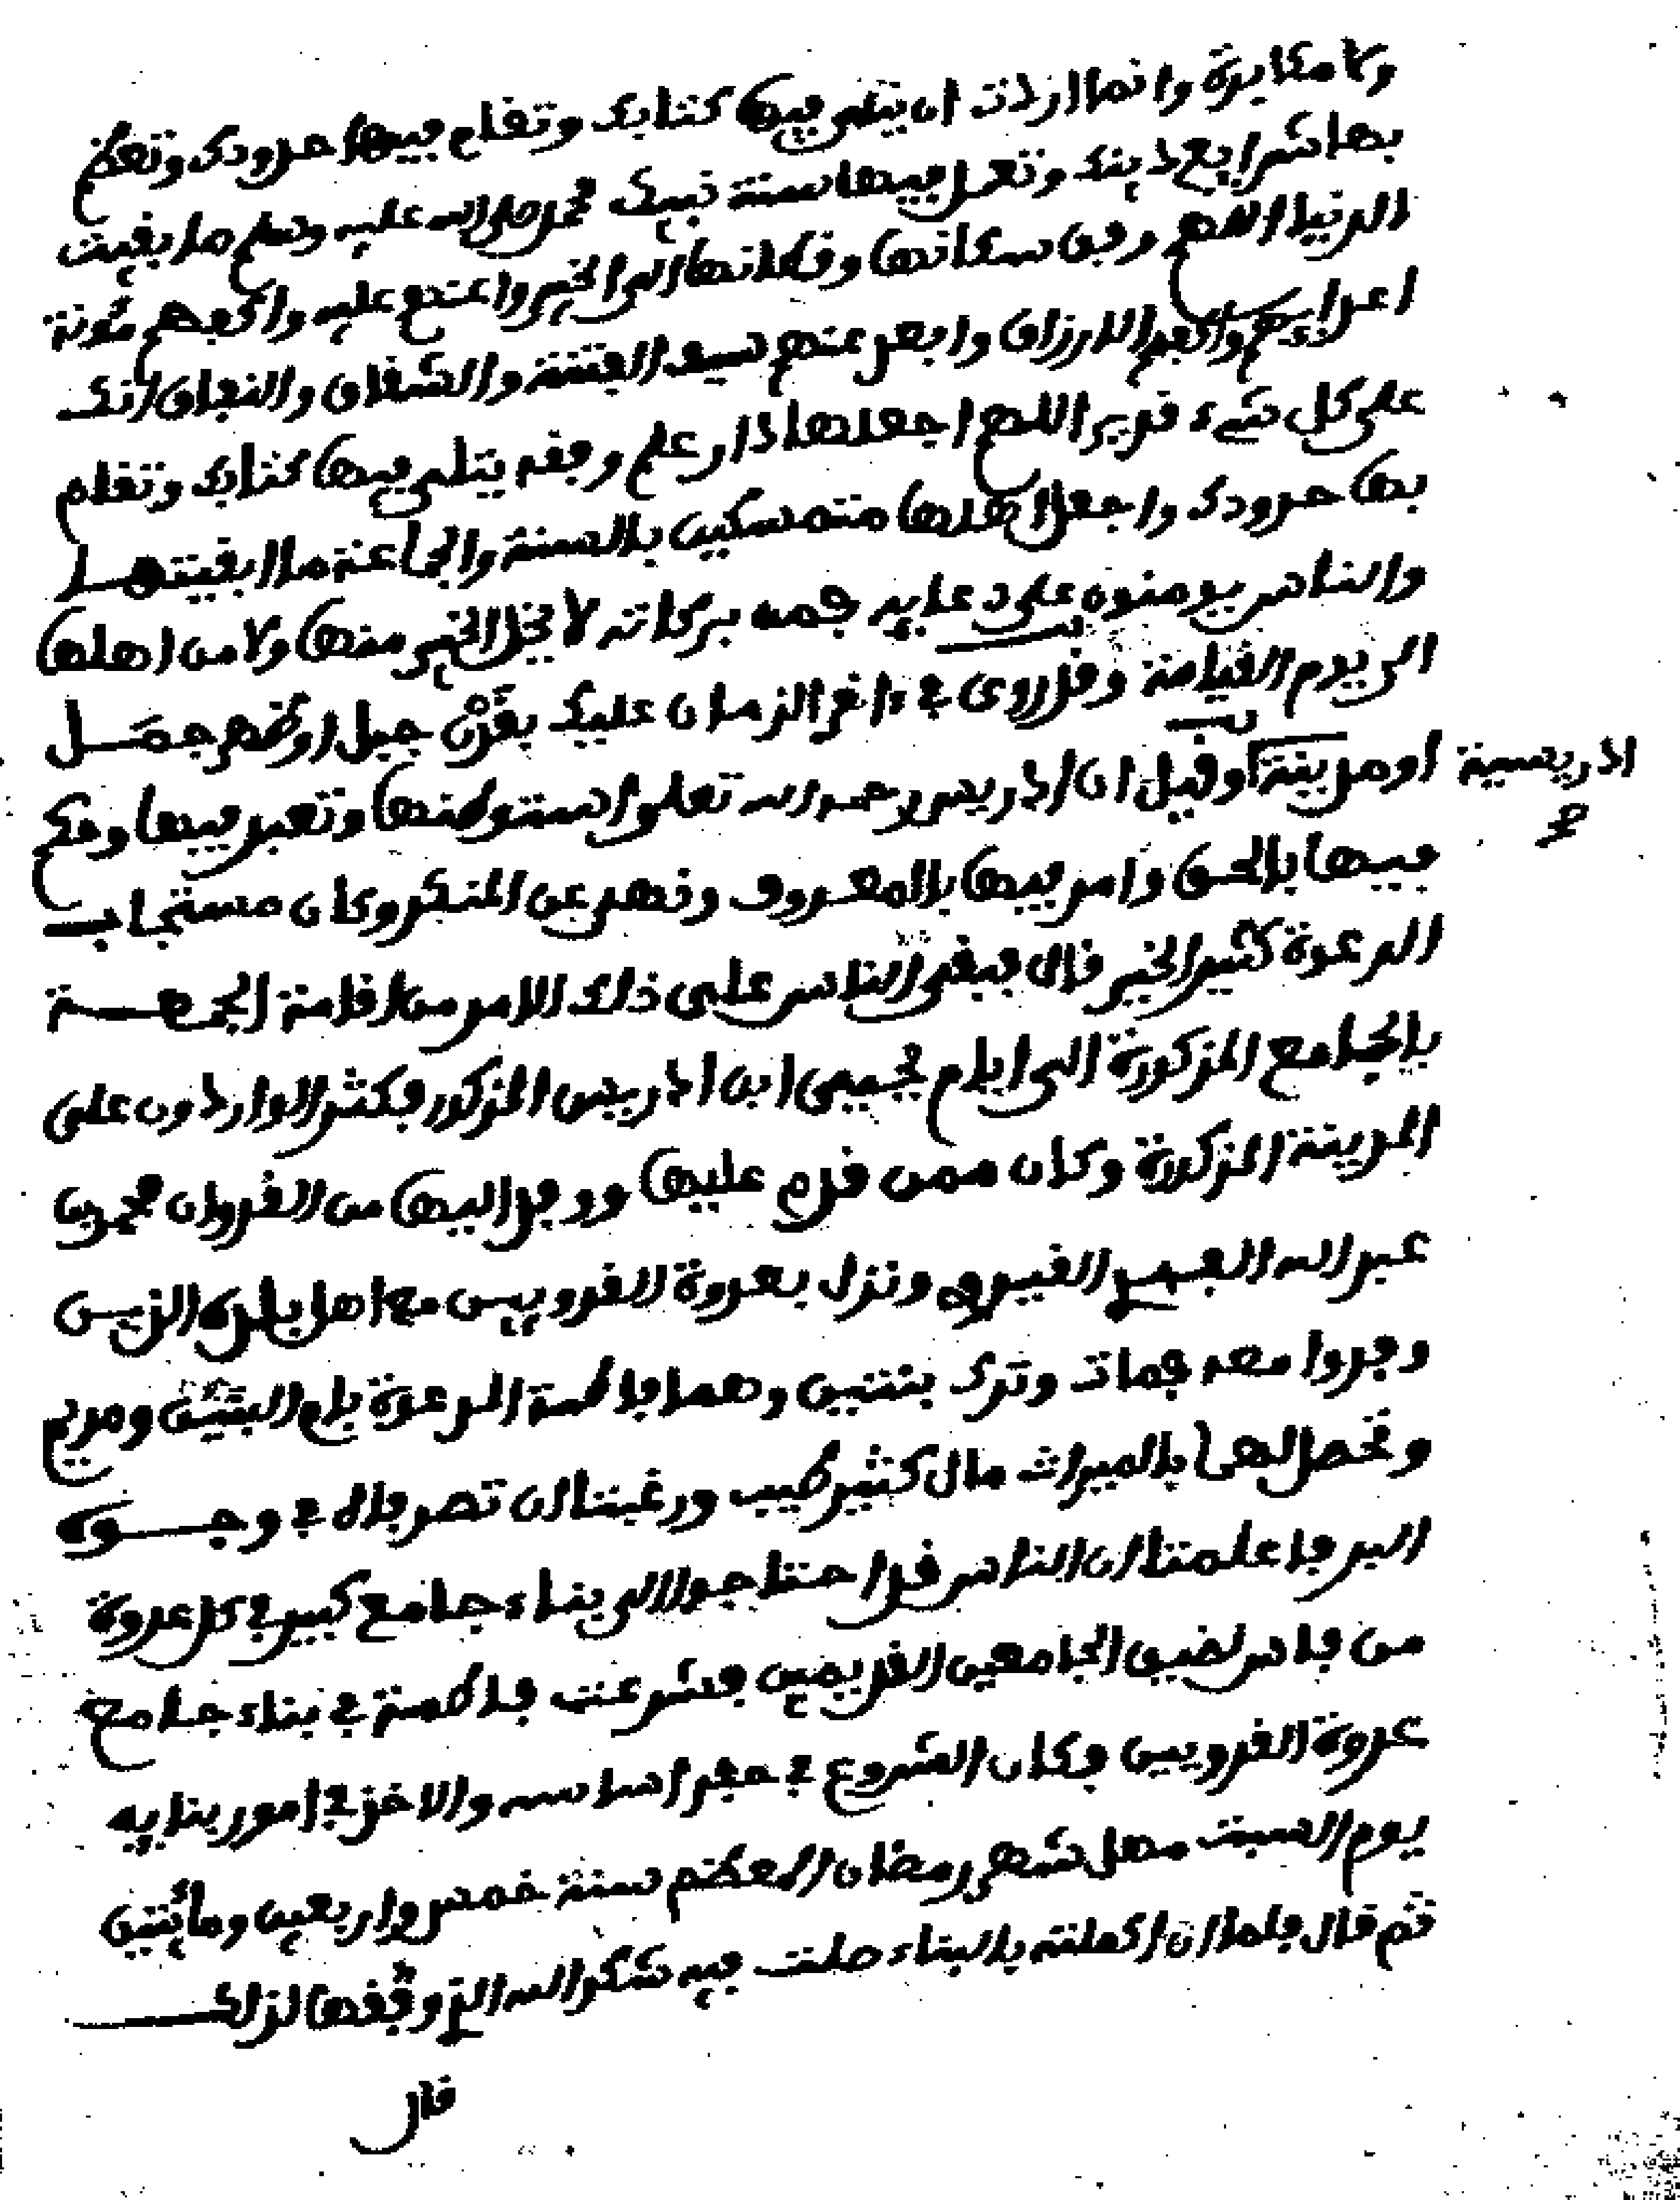 ولا مكابرة وانما اردت ان يتلى فيها كتابك وتقام فيها حدودك وتعظم
بها شرايع دينك وتعمل فيها سنة نبيك محمد صلى الله عليه وسلم ما بقيت
الدنيا اللهم وفق سكانها وقطانها الى الخير واعنهم عليه واكفهم مئونة
اعدايهم الارزاق وابعد عنهم سيف الفتنة والشقاق والنفاق انك
على كل شيء قدير اللهم اجعلها دار علم وفقه يتلى فيها كتابك وتقام
بها حدودك واجعل اهلها متمسكين بالسنة والجماعة ما ابقيتها
والناس يومنون على دعايه فمه بركاته لا يخل الخير منها ولا من اهلها
الى يوم القيامة وقد روى في ءاخر الزمان عليك بقرن جبل او بظهر جمل
او مدينة ادريسية وقيل ان ادريس رحمه الله تعلى استوطنها وتعبد فيها وحكم
فيها بالحق وامر فيها بالمعروف ونهى عن المنكر وكان مستجاب
الدعوة كثير الخير قال فبقي الناس على ذلك الامر من اقامة الجمعة
بالجامع المذكورة الى ايام يحيى ابن ادريس المذكور فكثر الواردون على
المدينة المذكورة وكان ممن قدم عليها ووفد اليها من القروان محمد بن
عبد الله الفهري القيروي ونزل بعدوة القرويين مع اهل بلده الذين
وفدوا معه فمات وترك بنتين وهما فاطمة المدعوة بام البنين ومريم
وتحصل لهما بالميراث مال كثير طيب ورغبتا ان تصرفاه في وجوه
البر فاعلمتا ان الناس قد احتاجوا الى بناء جامع كبير في كل عدوة
من فاس لضيق الجامعين القديمين فشرعت فاطمة في بناء جامع
عدوة القرويين وكان الشروع في حفر اساسه والاخذ في امور بنايه
يوم السبت مهل شهر رمضان المعظم سنة خمس واربعين ومائتين
ثم قال فلما ان اكملته بالبناء صلت فيه شكر الله الذي وفقها لذلك
قال